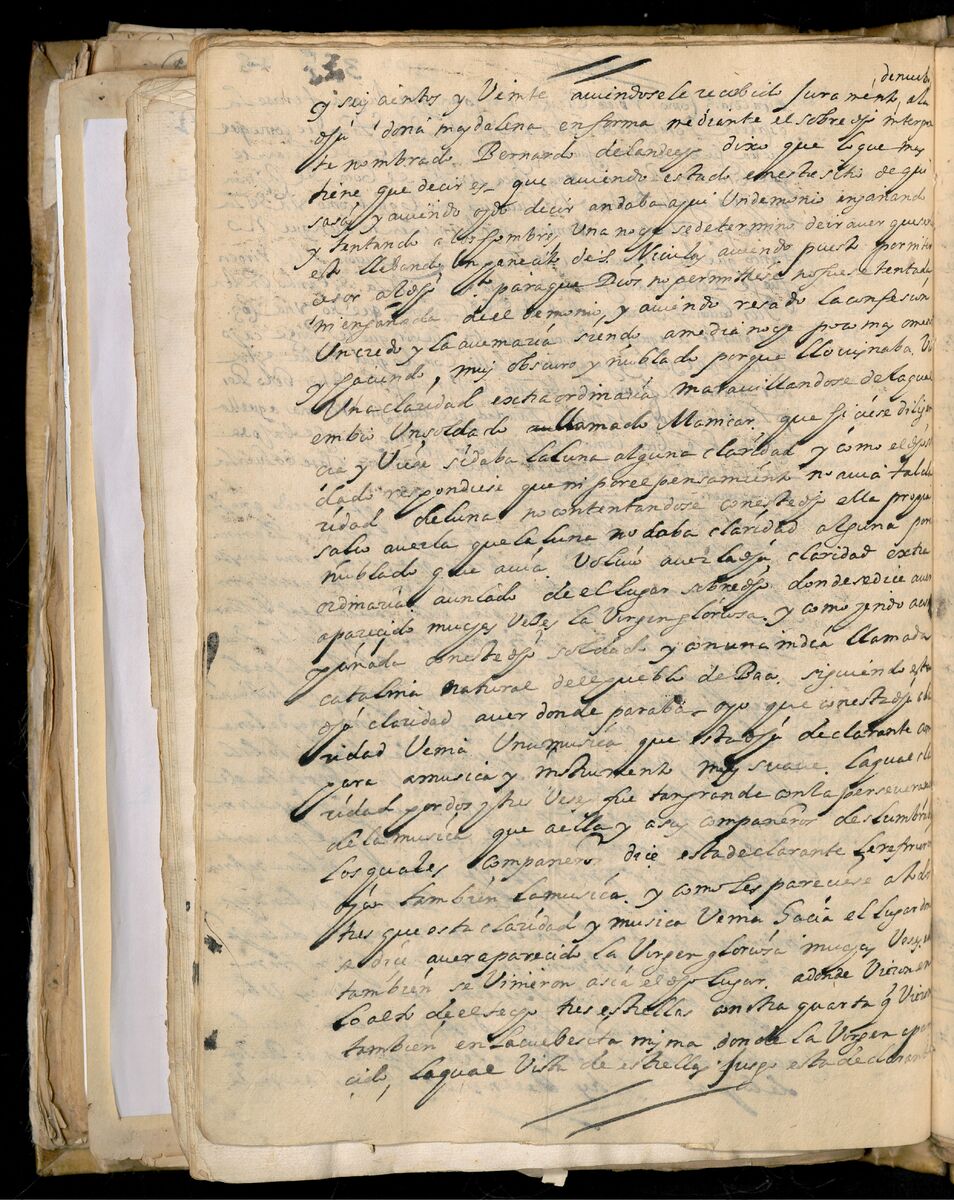 de nuebo
y seiscientos y Veinte auiendosele recebido Juramento, a la
dha doña magdalena en forma mediante el sobredho interpre
te nombrado Bernardo de dixo que lo que mas
tiene que decir es que auiendo estado en este sitio de gui
sasa, y auiendo oydo decir andaba aqui Un demonio engañando
y tentando a los hombres Una noche se determino de ir a uer que era
esto llebando Un de S. Nicolas auiendo puesto por inter
cesor al dho Sto para que Dios no permitiese no fuese tentada
ni engañada de el demonio, y auiendo resado la confesion
Un credo y la auemaria siendo a media noche poco mas o menos
y haciendo, muy obscuro y nublado porque llouisnaba, Vio
Una claridad extraordinaria marauillandose de la qual
embio Un soldado llamado Mamicar, que hiciese diligen
cia y Viese si daba la luna alguna claridad y como el dho sol
dado respondiese que ni por el pensamiento no auia tal cla
ridad de luna no contentandose con esto dho ella propria
salio a uerla que la luna no daba claridad alguna por el
ñublado que auia. Voluio a uer la dha claridad extra
ordinaria a un lado de el lugar sobredho donde se dice auer
aparecido muchas Veses la Virgen gloriosa. y como yendo acom
pañada con este dho soldado y con una india llamada
catalina natural del pueblo de Baa. siguiendo esta
dha claridad a uer donde paraba oyo que con esta dha cla
ridad Venia Una musica que esta dha declarante com
para a musica y instrumento muy suaue. la qual cla
ridad por dos o tres Veses fue tan grande con la perseuerancia
de la musica que a ella y a sus compañeros deslumbro
los quales compañeros dice esta declarante
oyan tambien la musica. y como les pareciese a todos
tres que esta claridad y musica Venia hacia el lugar don
se dice auer aparecido la Virgen gloriosa muchas Veses,
tambien se Vinieron acia el dho lugar. adonde Vieron en
lo alto de el techo tres estrellas con otra quarta q Vieron
tambien en la cuebesita misma donde la Virgen apare
cio, la qual Vista de estrellas juzgo esta declarante